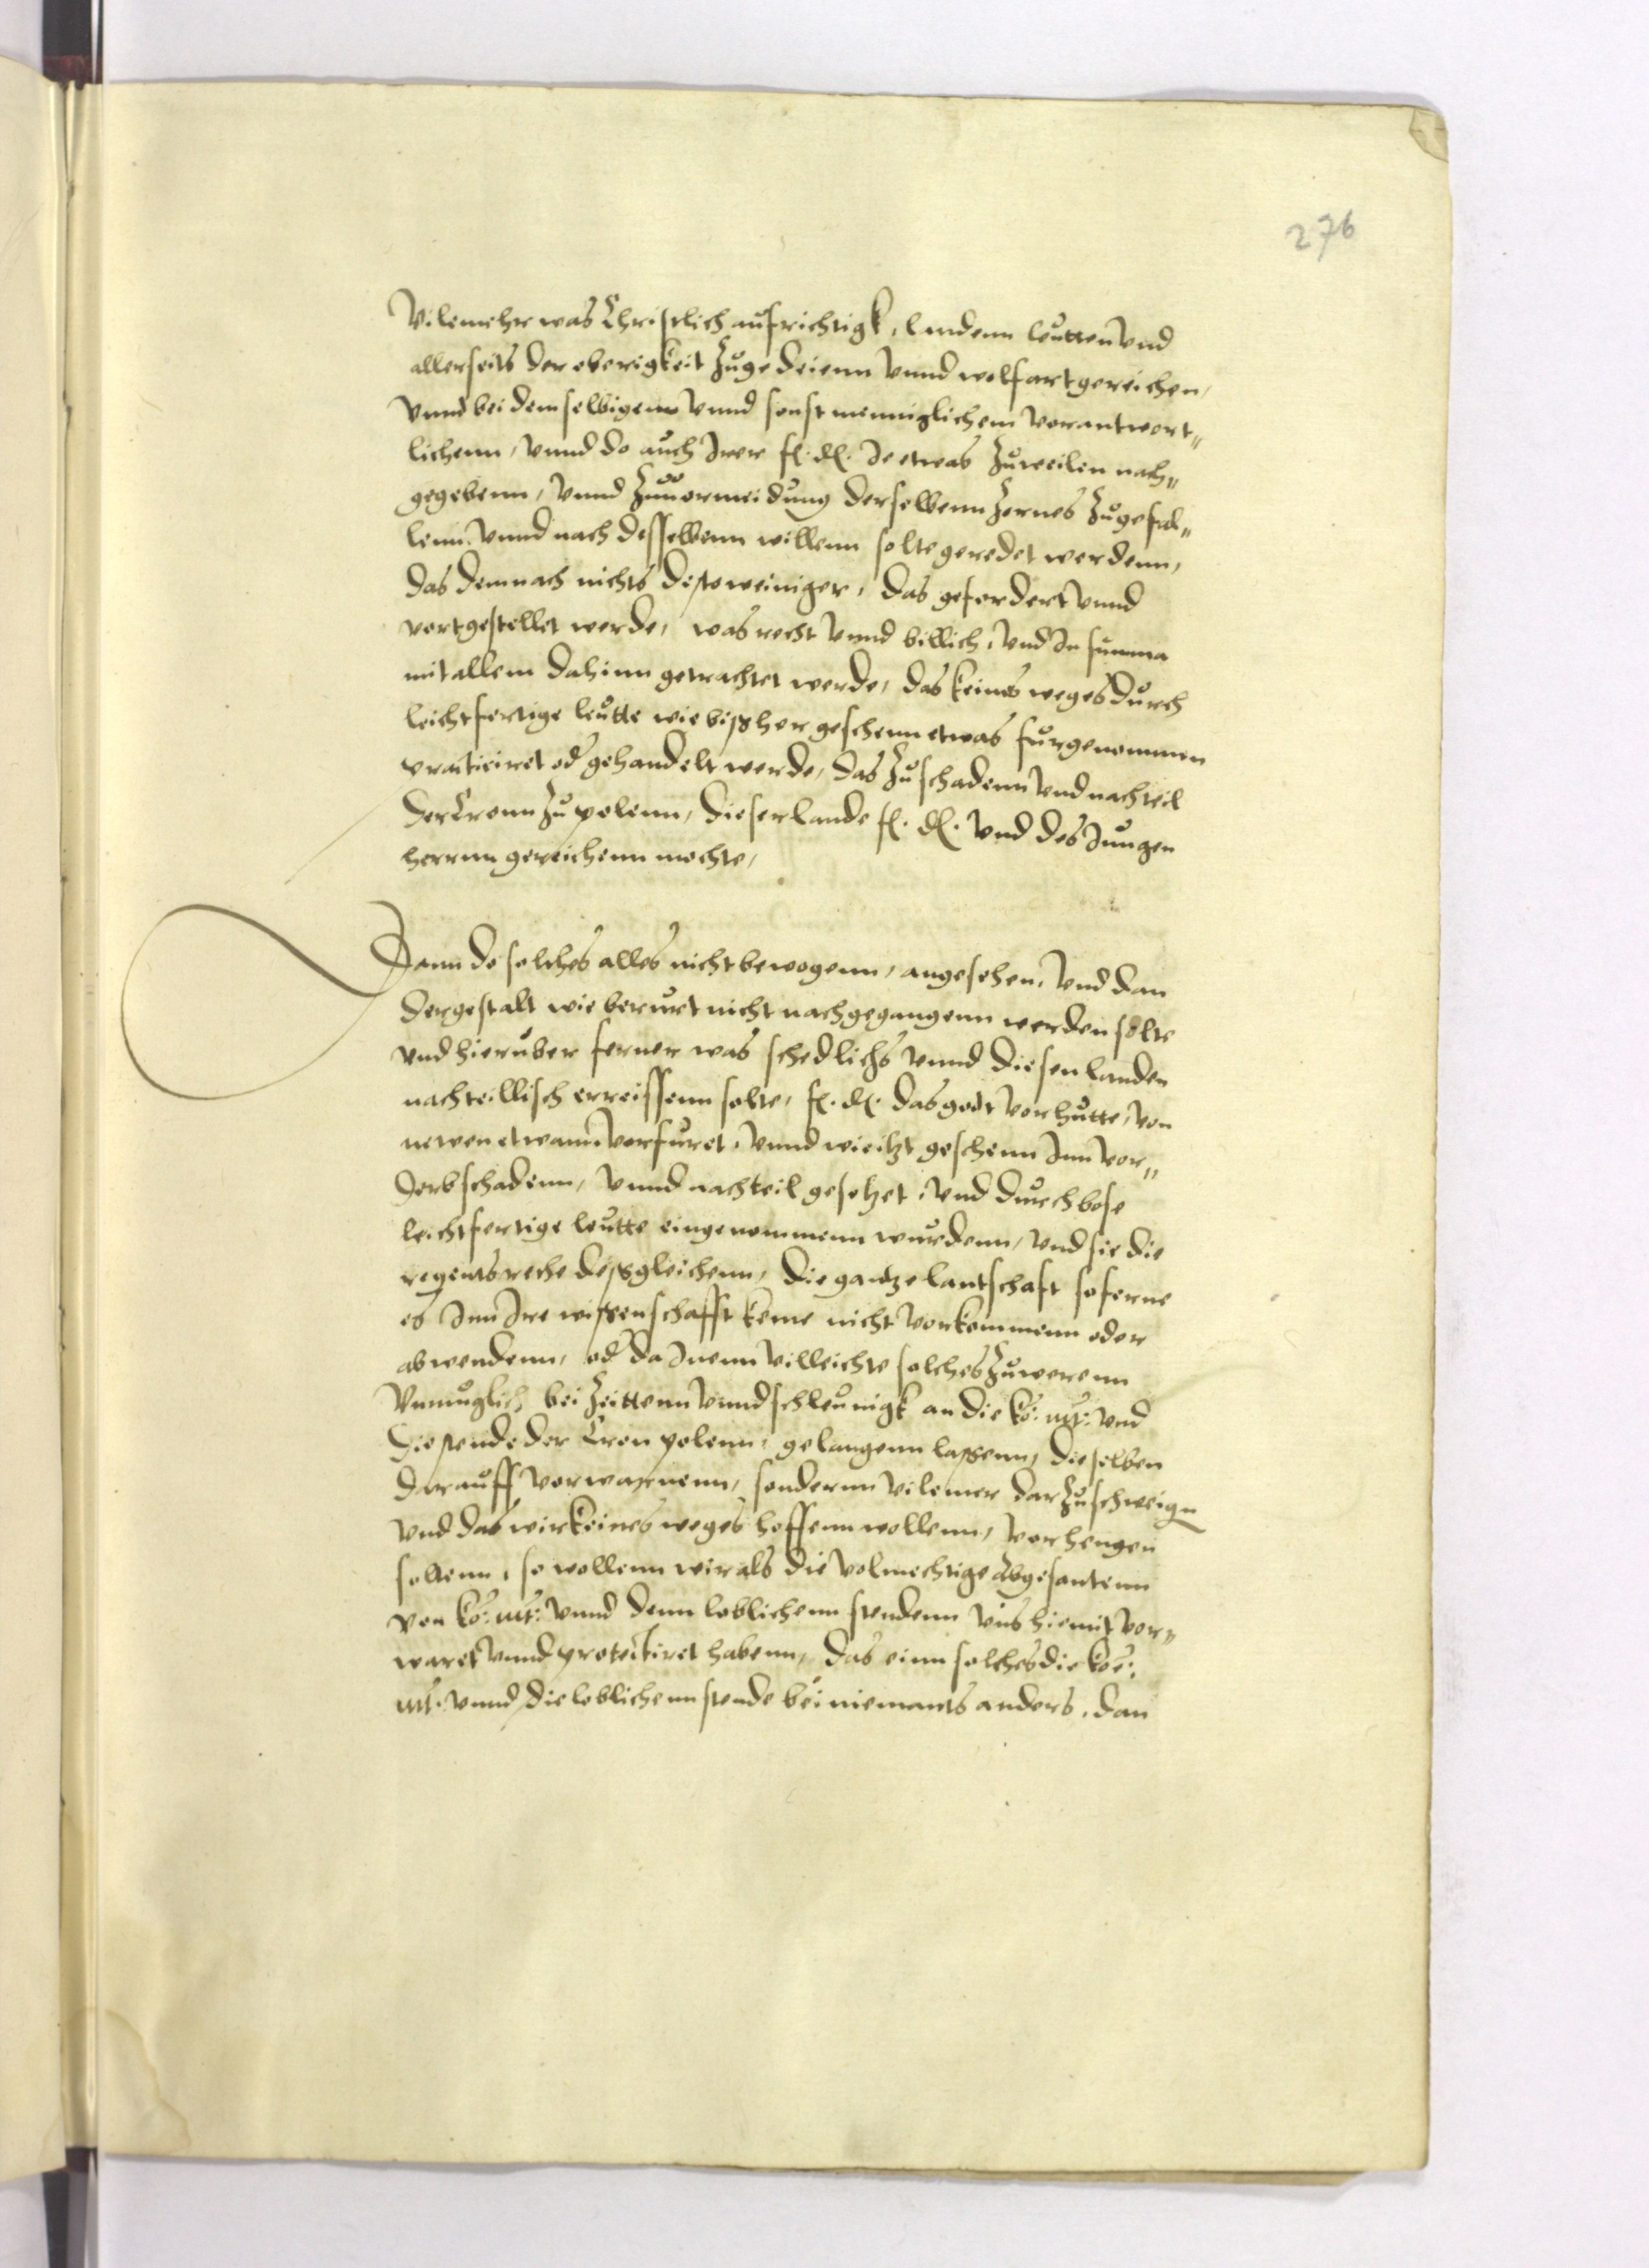 276
Vilemehr was Christlich aufrichtigk, landenn leutten vnd
allerseits der oberigkeit zu gedeienn vnnd wolfart gereichen,
vnnd bei demselbigenn vnnd sonst menniglichem vorantwort„
lichenn, vnnd do auch Irer fl. dl. Je etwas zuweilen nach„
gegebenn, vnnd zuuormeidung derselbenn zornes zugefal„
lenn, vnnd nach desselbenn willenn solte geredet werdenn,
das demnach nichts destoweiniger, das gefordert vnnd
vortgestellet werde, was recht vnnd billich, vnd In summa
mit allem dahinn getrachtet werde, das keines weges durch
leichtfertige leutte wie bisher geschenn etwas furgenommen
practiciret od gehandelt werde, das zu schadenn vnd nachteil
der Cronn zu polenn, dieser lande fl. dl. vnd des Jungen
herrnn gereichenn mochte,
Dann do solches alles nicht bewogenn, angesehen, vnd dan
dergestalt wie berurt nicht nachgegangenn werden solte
vnd hieruber ferner was schedlichs vnnd diesen landen
nachteillisch erreissenn solte, fl. dl. das godt vorhutte, von
newen etwann vorfuret, vnnd wie itzt geschenn Inn vor„
derb schadenn, vnnd nachteil gesetzet, vnd durch bose
leichtfertige leutte eingenommenn wurdenn, vnd sie die
regents rethe desgleichenn, die gantze lantschaft soferne
es Inn Ire wissenschafft keme nicht vorkommenn oder
abwendenn, od da Inenn villeichte solches zuwerenn
vnmuglich bei zeittenn vnnd schleunigk an die ko: mt: vnd
die stende der Cron polenn, gelangenn lassenn, dieselben
darauff vorwarnenn, sondernn vilemer darzu schweign
vnd das wir keines weges hoffenn wollenn, vorhengen
soltenn, so wollenn wir als die volmechtige abgesantenn
von ko: mt: vnnd denn loblichenn stendenn vns hiemit vor„
waret vnnd protestiret habenn, das einn solches die koe:
mt: vnnd die loblichenn stende bei niemants anders, dan